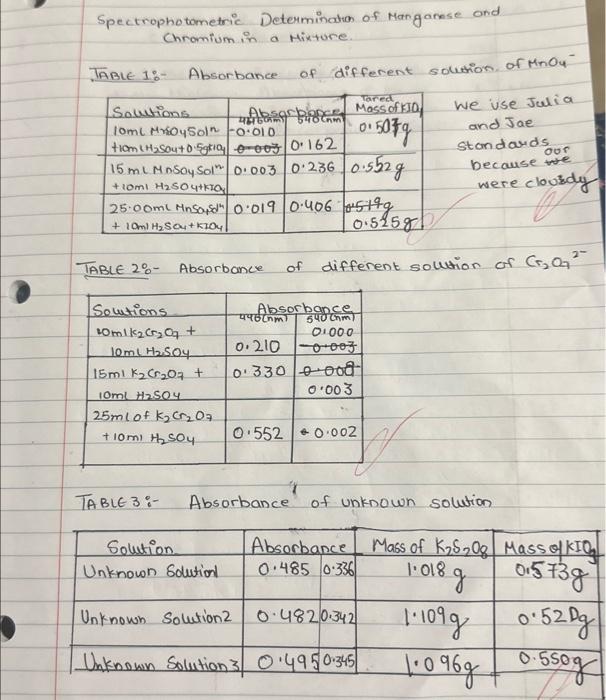 Spectrophotometric Determination of Manganese and
Chromium in a Mixture.
TABLE 1:- Absorbance of different solution of MnO4-
Solutions | Absorbance | Tared Mass of KIO4
446(nm) | 540(nm)
10mL MnSO4 Soln +10mL H2SO4+0.5gKIO4 | -0.010 | 0.162 | 0.507g
0.003
15mL MnSO4 Soln +10ml H2SO4+KIO4 | 0.003 | 0.236 | 0.552g
25.00mL MnSO4 Soln + 10ml H2SO4+KIO4 | 0.019 | 0.406 | 0.519g
0.525g
We use Julia
and Jae
Standards
because we our
were cloudy
TABLE 2:- Absorbance of different solution of Cr2O7 2-
Solutions | Absorbance
440(nm) | 540(nm)
10ml K2Cr2O7 + 10mL H2SO4 | 0.210 | 0.000
-0.003
15ml K2Cr2O7 + 10mL H2SO4 | 0.330 | 0.003
25ml of K2Cr2O7 +10ml H2SO4 | 0.552 | 0.002
TABLE 3:- Absorbance of unknown solution
Solution | Absorbance | Mass of K2S2O8 | Mass of KIO4
Unknown Solution1 | 0.485 | 0.336 | 1.018 g | 0.573g
Unknown Solution2 | 0.482 | 0.342 | 1.109g | 0.520g
Unknown Solution3 | 0.495 | 0.345 | 1.096g | 0.550g